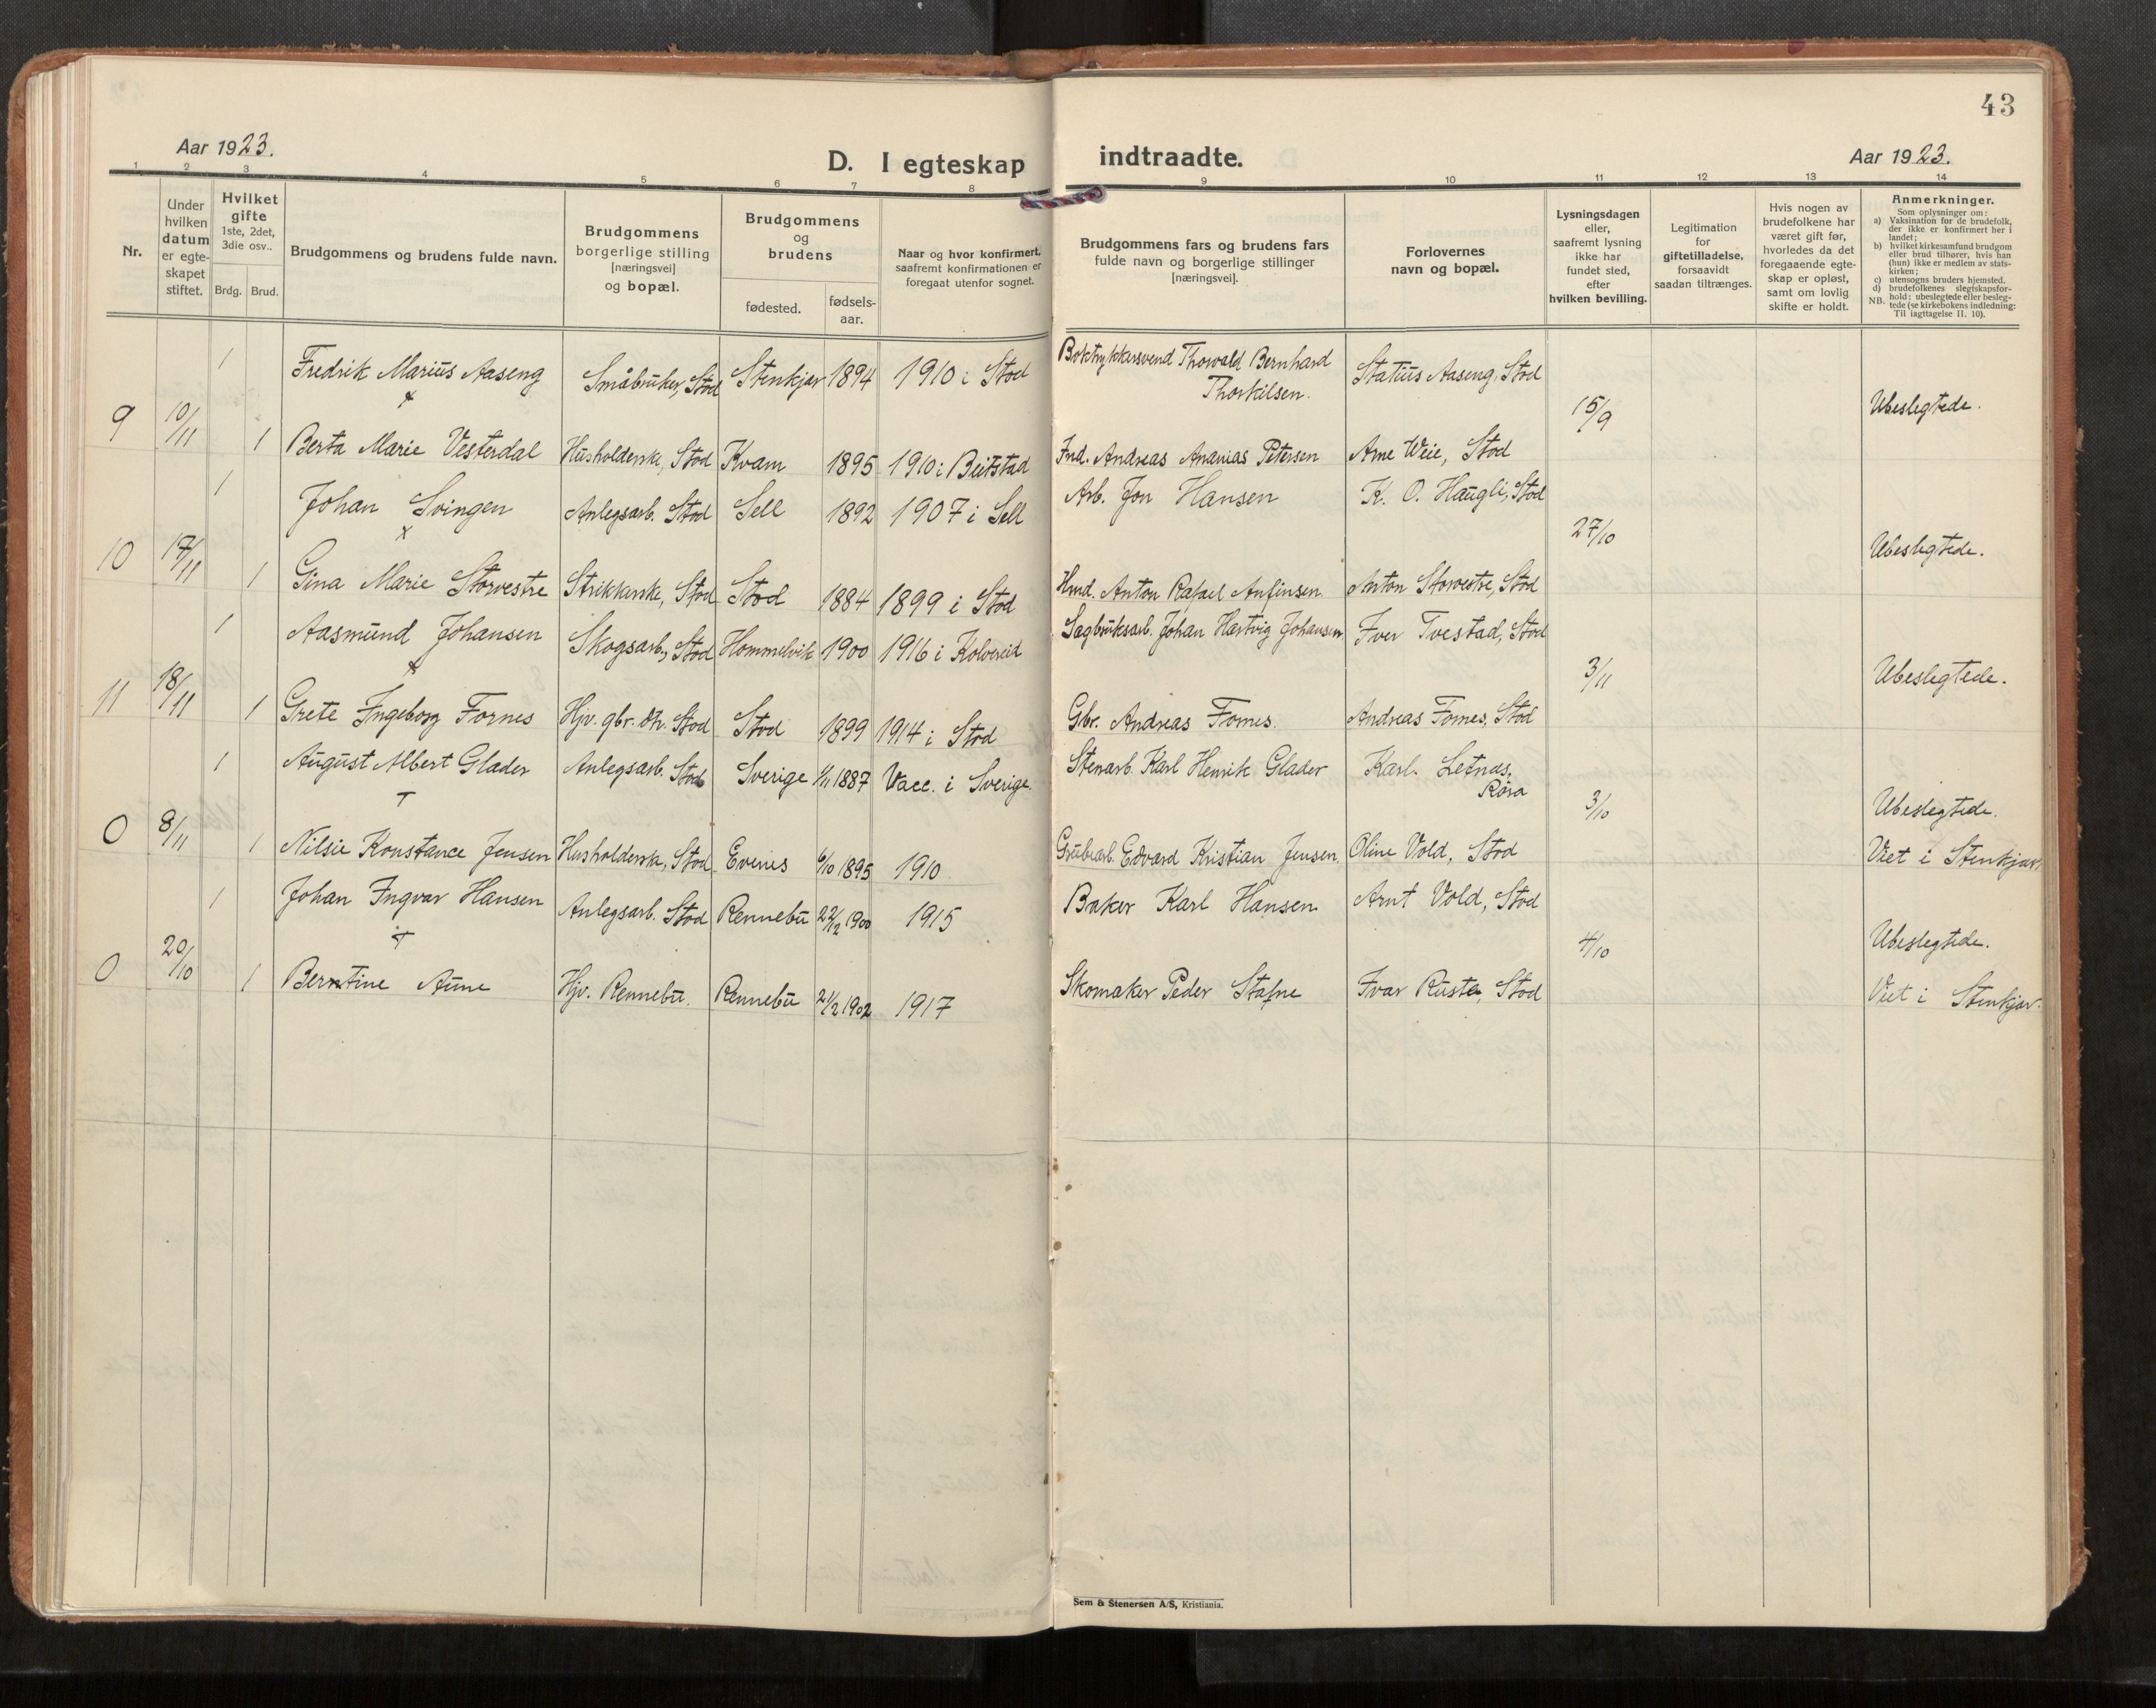 43
Aar 1923.
D. I egteskap indtraadte.
Aar 1923.
1 2 3 4 5 6 7 8 9 10 11 12 13 14
Nr.
Under hvilken datum er egte-skapet stiftet.
Hvilket gifte 1ste, 2det, 3die osv..
Brdg. Brud.
Brudgommens og brudens fulde navn.
Brudgommens borgerlige stilling [næringsvei] og bopæl.
Brudgommens og brudens
fødested.
fødsels-aar.
Naar og hvor konfirmert, saafremt konfirmationen er foregaat utenfor sognet.
Brudgommens fars og brudens fars fulde navn og borgerlige stillinger [næringsvei].
Forlovernes navn og bopæl.
Lysningsdagen eller, saafremt lysning ikke har fundet sted, efter hvilken bevilling.
Legitimation for giftetilladelse, forsaavidt saadan tiltrænges.
Hvis nogen av brudefolkene har været gift før, hvorledes da det foregaaende egte-skap er opløst, samt om lovlig skifte er holdt.
Anmerkninger.
Som oplysninger om:
a) Vaksination for de brudefolk, der ikke er konfirmert her i landet;
b) hvilket kirkesamfund brudgom eller brud tilhører, hvis han (hun) ikke er medlem av stats-kirken;
c) utensogns bruders hjemsted.
d) brudefolkenes slegtskapsfor-hold: ubeslegtede eller besleg-tede (se kirkebokens indledning: Til iagttagelse II. 10).
NB.
1 Fredrik Marius Aaseng Småbruker, Stod Stenkjær 1894 1910 i Stod Boktrykkersvend Thorvald Bernhard Thorkilsen. Statius Aaseng, Stod
9 10/11 x 15/9 Ubeslegtede.
1 Berta Marie Vesterdal Husholderske, Stod Kvam 1895 1910 i Beitstad Ind. Andreas Ananias Petersen Arne Weie, Stod
1 Johan Svingen Anlegsarb. Stod Sell 1892 1907 i Sell Arb. Jon Hansen K. O. Haugli, Stod
10 17/11 x 27/10 Ubeslegtede.
1 Gina Marie Storvestre Strikkerske, Stod Stod 1884 1899 i Stod Hmd. Anton Rafael Anfinsen Anton Storvestre, Stod
1 Aasmund Johansen Skogsarb., Stod Hommelvik 1900 1916 i Kolvereid Sagbruksarb. Johan Hartvig Johansen Iver Tvestad, Stod
11 18/11 x 3/11 Ubeslegtede.
1 Grete Ingeborg Fornes Hjv. gbr. dt. Stod Stod 1899 1914 i Stod Gbr. Andreas Fornes. Andreas Fornes, Stod
1 August Albert Glader Anlegsarb. Stod Sverige 1/11 1887 Vacc. i Sverige. Stenarb. Karl Henrik Glader Karl. Letnes, Røra
0 8/11 T 3/10 Ubeslegtede.
1 Nilsie Konstance Jensen Husholderske, Stod Evenes 6/10 1895 1910 Grubearb. Edvard Kristian Jensen. Oline Vold, Stod Viet i Stenkjær.
1 Johan Ingvar Hansen Anlegsarb. Stod Rennebu 22/12 1900 1915 Baker Karl Hansen Arnt Vold, Stod
0 20/10 T 4/10 Ubeslegtede.
1 Berntine Aune Hjv. Rennebu. Rennebu 21/2 1902 1917 Skomaker Peder Stafne Ivar Ruste, Stod Viet i Stenkjær.
Sem & Stenersen A/S, Kristiania.